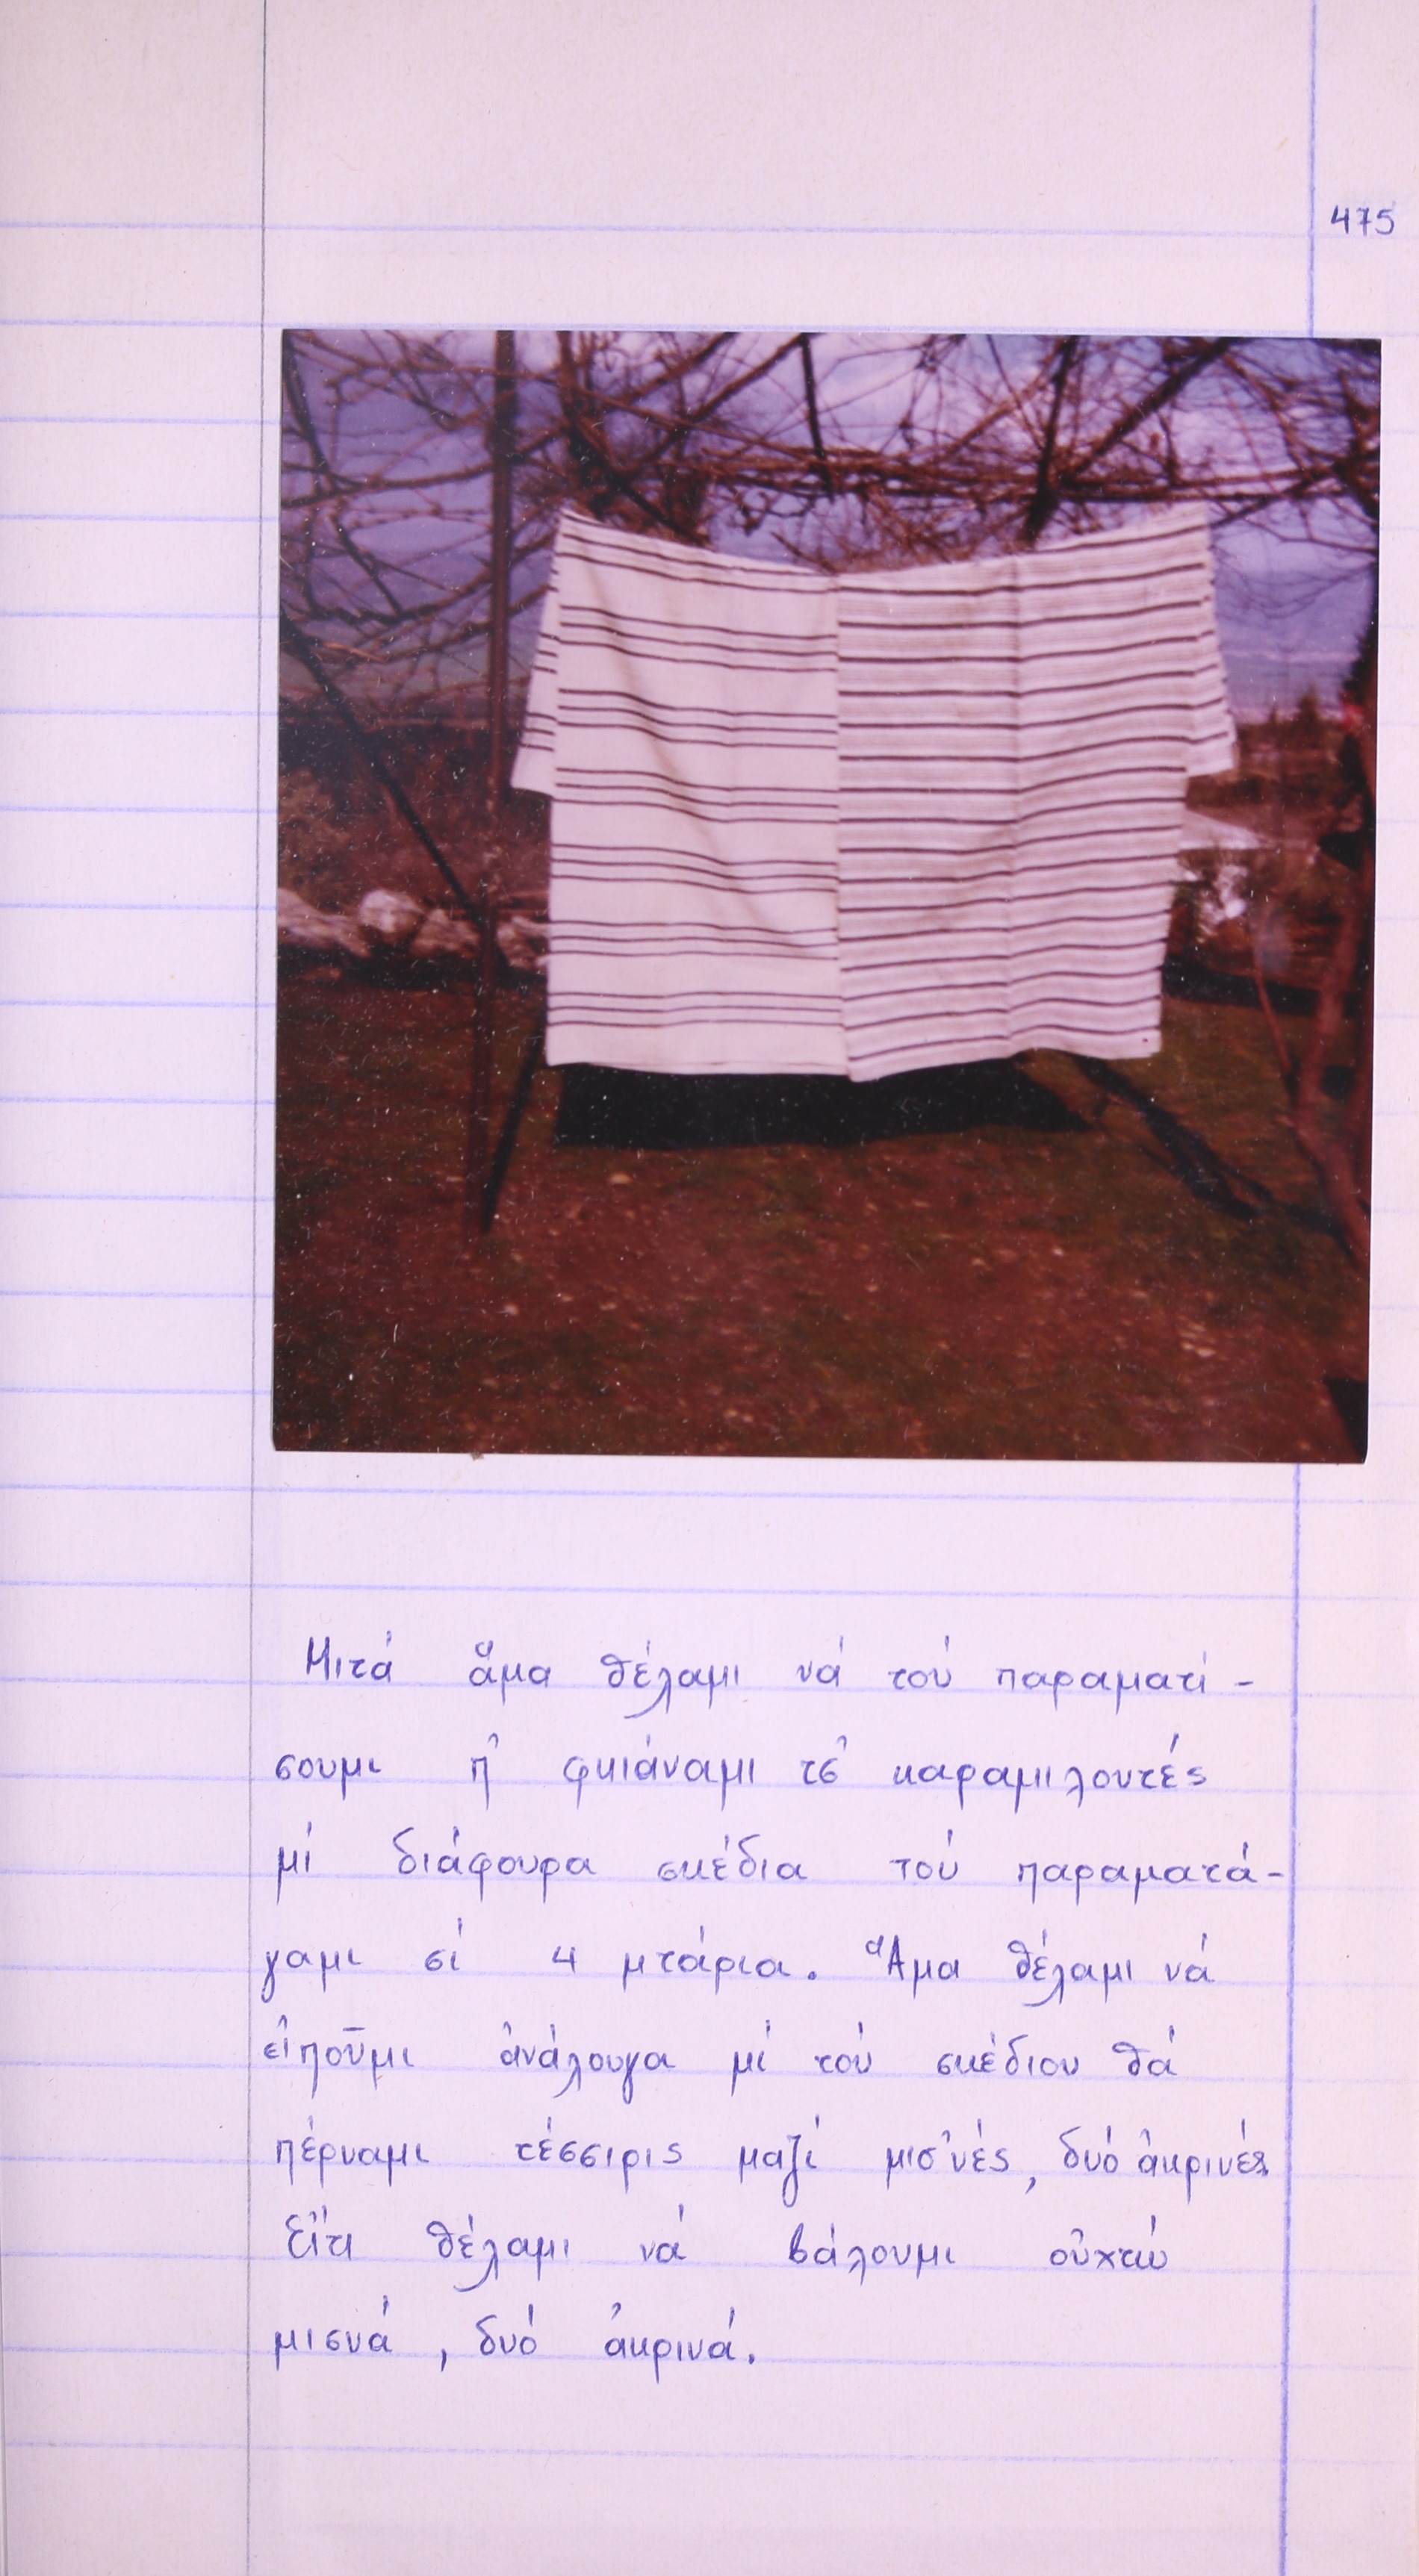 475
Μιτά ἅμα θέλαμι νά τού παραματί-
σουμι ἤ φκιάναμι τσ᾿ καραμιλουτές
μί διάφουρα σκέδια τού παραματά-
γαμι σί 4 μτάρια. Ἅμα θέλαμι νά
εἰποῦμι ἀνάλουγα μί τού σκέδιου θά
πέρναμι τέσσιρις μαζί μισ᾿νές, δυό ἀκρινές
Εἴτι θέλαμι νά βάλουμι οὐχτώ
μισνά, δυό ἀκρινά.